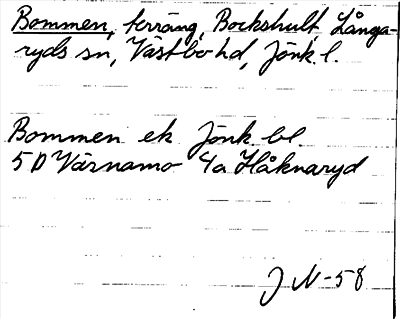 Bommen, terräng, Bockshult, Långa-
ryds sn, Västbo hd, Jönk. l.
Bommen ek Jönk. bl.
5 D Värnamo 4a Håknaryd
J N-58